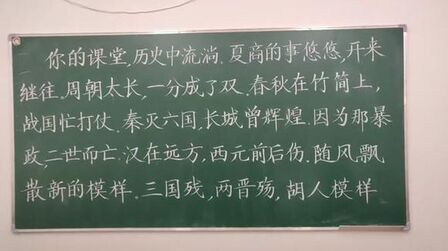 你的课堂,历史中流淌.夏商的事悠悠,开来
继往.周朝太长,一分成了双.春秋在竹简上,
战国忙打仗.秦灭六国,长城曾辉煌.因为那暴
政,二世而亡.汉在远方,西元前后伤.随风飘
散新的模样.三国残,两晋殇,胡人模样